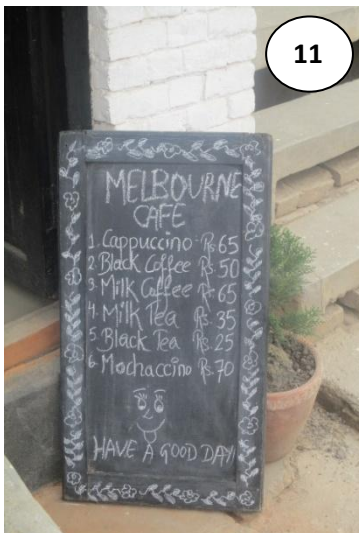 11
MELBOURNE
CAFE
1. Cappuccino - Rs 65
2. Black Coffee Rs 50
3. Milk Coffee Rs 65
4. Milk Tea Rs. 35
5. Black Tea Rs. 25
6. Mochaccino Rs. 70
HAVE A GOOD DAY!